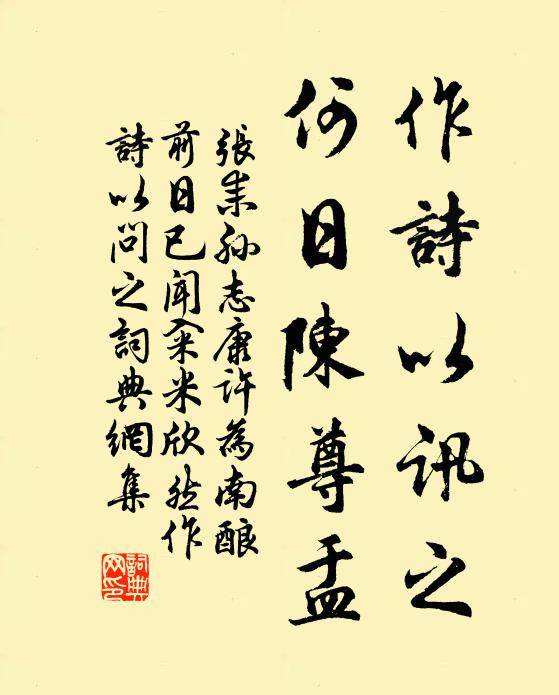 作詩以訊之
何日陳尊盂
張耒孫志康許為南釀
前日已聞籴米欣然作
詩以問之詞典網集
詞典网印